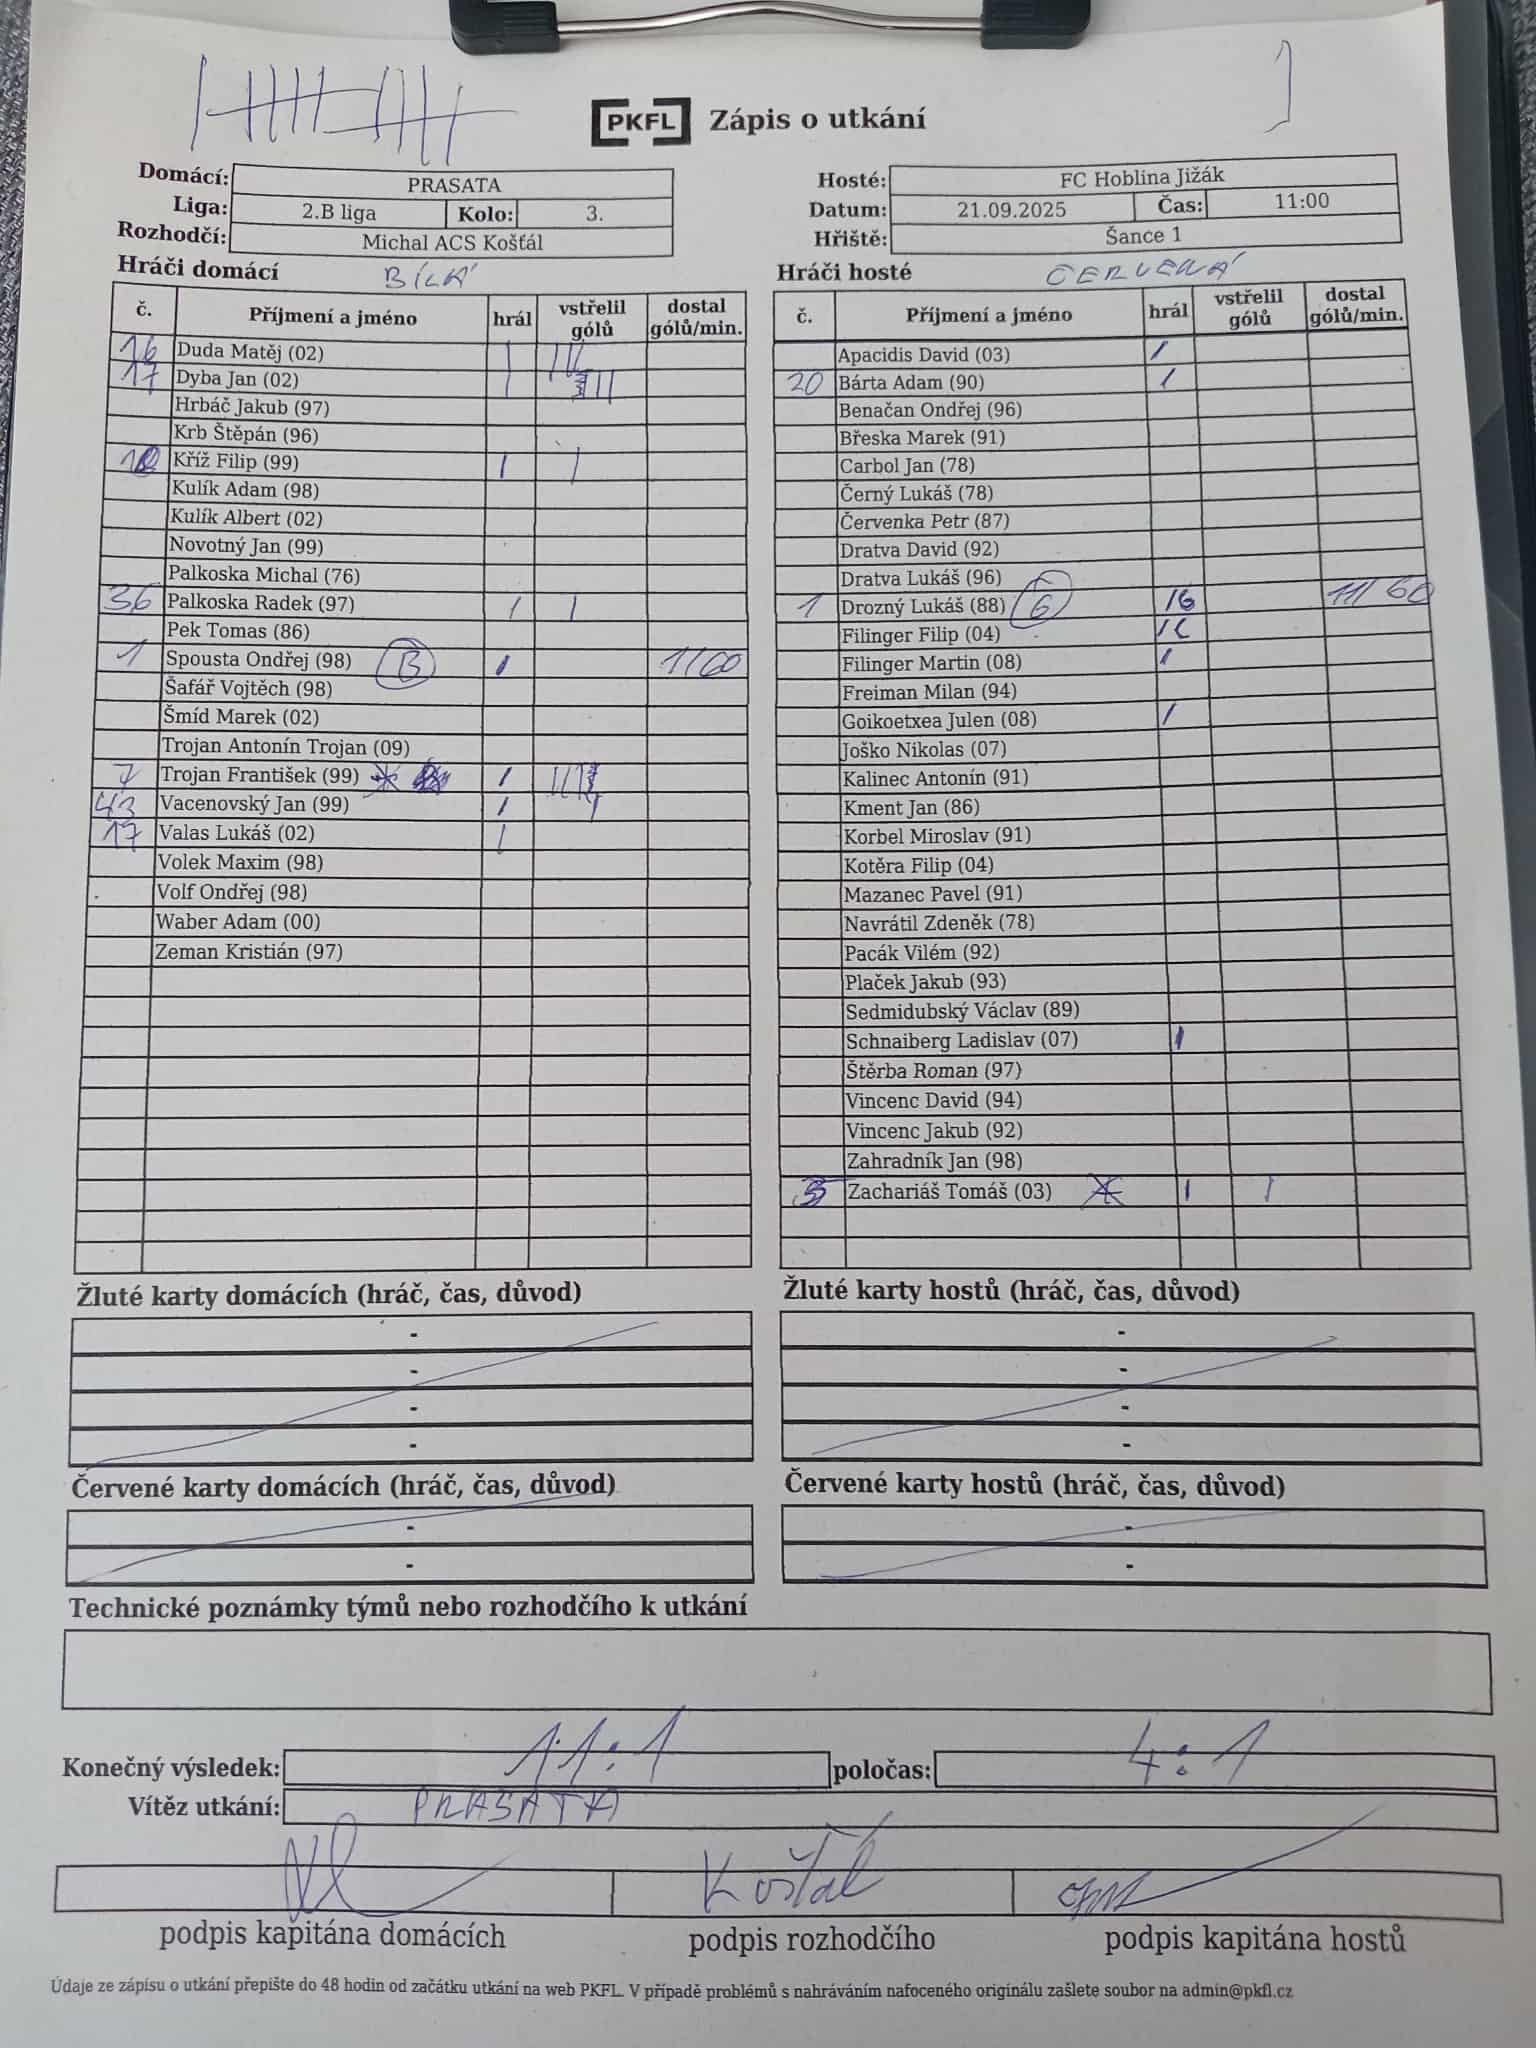 PKFL Zápis o utkání
Domácí: PRASATA
Liga: 2.B liga Kolo: 3.
Rozhodčí: Michal ACS Košťál
Hosté: FC Hoblina Jižák
Datum: 21.09.2025 Čas: 11:00
Hřiště: Šance 1
Hráči domácí BÍLÁ
č. Příjmení a jméno hrál vstřelil gólů dostal gólů/min.
16 Duda Matěj (02)
17 Dyba Jan (02)
Hrbáč Jakub (97)
Krb Štěpán (96)
Kříž Filip (99) 1 1
Kulík Adam (98)
Kulík Albert (02)
Novotný Jan (99)
Palkoska Michal (76)
36 Palkoska Radek (97) 1 1
Pek Tomas (86)
1 Spousta Ondřej (98) B 1 1/60
Šafář Vojtěch (98)
Šmíd Marek (02)
Trojan Antonín Trojan (09)
7 Trojan František (99) 1
43 Vacenovský Jan (99) 1 1
17 Valas Lukáš (02) 1
Volek Maxim (98)
Volf Ondřej (98)
Waber Adam (00)
Zeman Kristián (97)
Hráči hosté ČERVENÁ
č. Příjmení a jméno hrál vstřelil gólů dostal gólů/min.
Apacidis David (03) 1
20 Bárta Adam (90) 1
Benačan Ondřej (96)
Břeska Marek (91)
Carbol Jan (78)
Černý Lukáš (78)
Červenka Petr (87)
Dratva David (92)
Dratva Lukáš (96)
1 Drozný Lukáš (88) G 11/60
Filinger Filip (04)
Filinger Martin (08) 1
Freiman Milan (94)
Goikoetxea Julen (08) 1
Joško Nikolas (07)
Kalinec Antonín (91)
Kment Jan (86)
Korbel Miroslav (91)
Kotěra Filip (04)
Mazanec Pavel (91)
Navrátil Zdeněk (78)
Pacák Vilém (92)
Plaček Jakub (93)
Sedmidubský Václav (89)
Schnaiberg Ladislav (07) 1
Štěrba Roman (97)
Vincenc David (94)
Vincenc Jakub (92)
Zahradník Jan (98)
Zachariáš Tomáš (03) 1 1
Žluté karty domácích (hráč, čas, důvod)
-
-
-
-
Žluté karty hostů (hráč, čas, důvod)
-
-
-
-
Červené karty domácích (hráč, čas, důvod)
-
-
Červené karty hostů (hráč, čas, důvod)
-
-
Technické poznámky týmů nebo rozhodčího k utkání
Konečný výsledek: 11:1 poločas: 4:1
Vítěz utkání: PRASATA
Košťál
podpis kapitána domácích podpis rozhodčího podpis kapitána hostů
Údaje ze zápisu o utkání přepište do 48 hodin od začátku utkání na web PKFL. V případě problémů s nahráváním nafoceného originálu zašlete soubor na admin@pkfl.cz